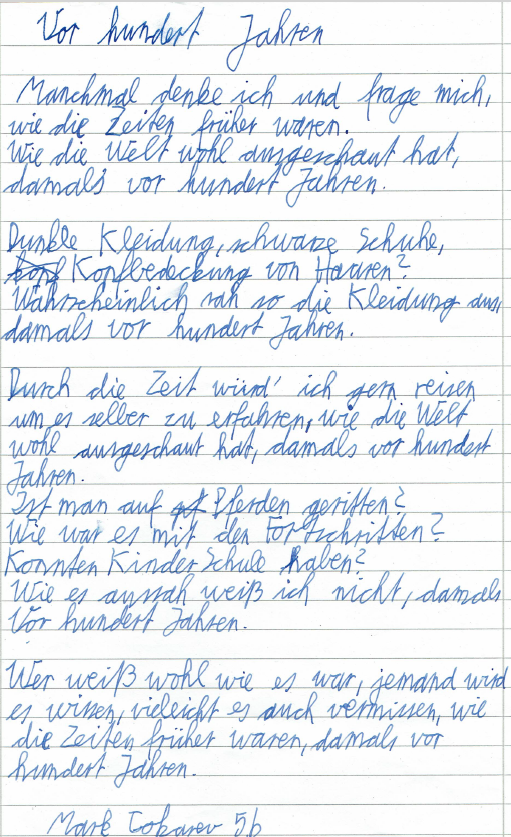 Vor hundert Jahren
Manchmal denke ich und frage mich,
wie die Zeiten früher waren.
Wie die Welt wohl ausgeschaut hat,
damals vor hundert Jahren.
Dunkle Kleidung, schwarze Schuhe,
Kopfbedeckung von Haaren?
Wahrscheinlich sah so die Kleidung aus,
damals vor hundert Jahren.
Durch die Zeit würd' ich gern reisen
um es selber zu erfahren, wie die Welt
wohl ausgeschaut hat, damals vor hundert
Jahren.
Ist man auf Pferden geritten?
Wie war es mit den Fortschritten?
Konnten Kinder Schule haben?
Wie es aussah weiß ich nicht, damals
Vor hundert Jahren.
Wer weiß wohl wie es war, jemand wird
es wissen, vieleicht es auch vermissen, wie
die Zeiten früher waren, damals vor
hundert Jahren.
Mark Tokarev 5b